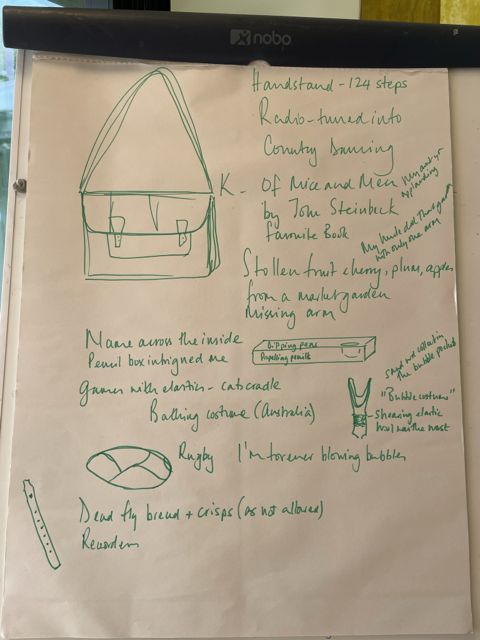 nobo
Handstand - 124 steps
Radio - tuned into
Country Dancing
K - Of Mice and Men
by Tom Steinbeck
favourite Book
My uncle did That garden
with only one arm
Stollen fruit cherry, plum, apples
from a market garden
Missing arm
Name across the inside
Pencil box intrigued me
Dipping pens
Propelling pencils
games with elastics - cats cradle
Bathing costume (Australia)
Sand collected in
The bubble pockets
"Bubble costume"
shearing elastic
Rugby I'm forever blowing bubbles
Dead fly bread + crisps (as not allowed)
Recorders